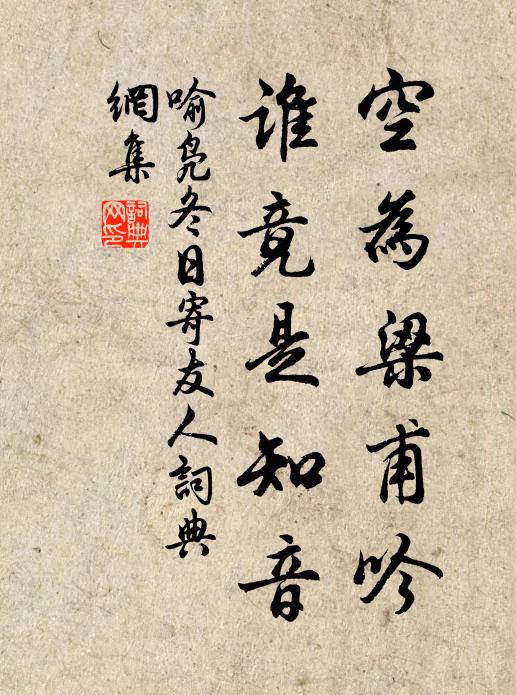 空為梁甫吟
谁竟是知音
喻凫冬日寄友人詞典
網集
詞典
网印